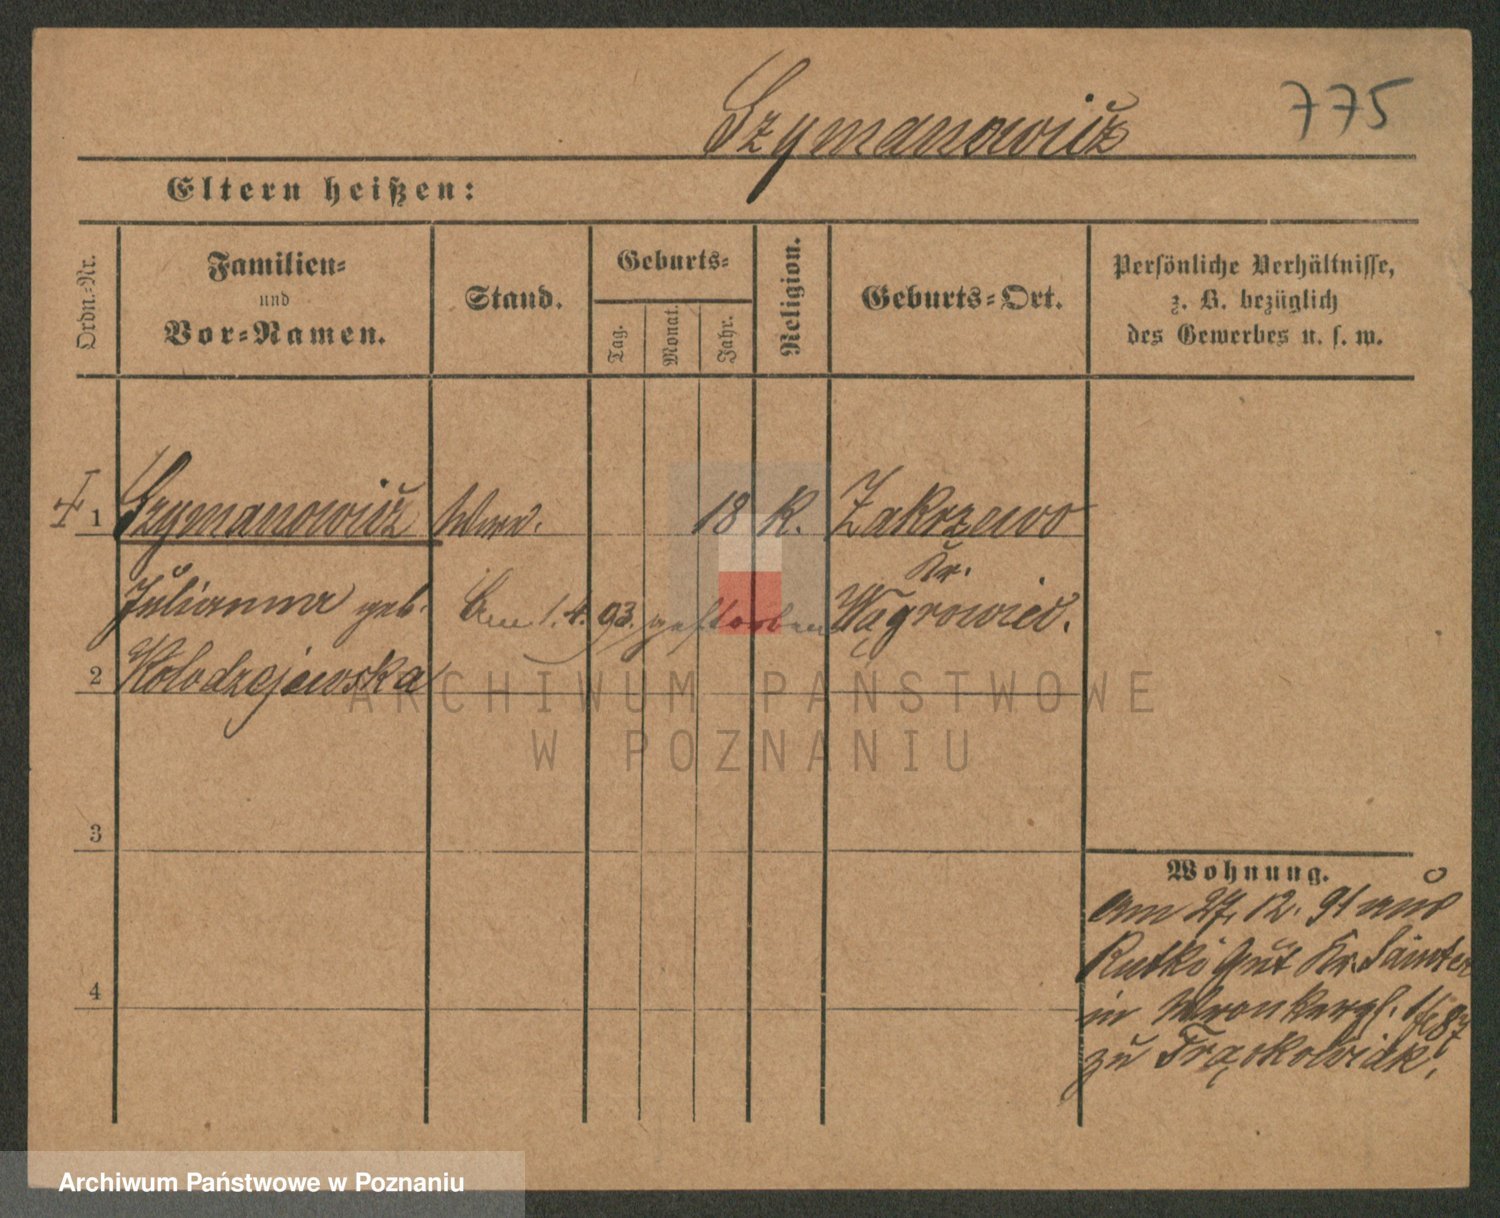 Szymanowicz
775
Eltern heißen:
Ordn.-Nr.
Familien-
und
Vor-Namen.
Stand.
Geburts-
Tag.
Monat.
Jahr.
Religion.
Geburts-Ort.
Persönliche Verhältnisse,
z. B. bezüglich
des Gewerbes u. s. w.
1 Szymanowicz 18 K. Zakrzewo
Kr.
Julianna geb. Am 1.4.93. gestorben Wągrowiec.
2 Kolodzejewska
3
4
Wohnung.
am 27.12.91 aus
Rutki Gut Kr. Samter
in
zu Frąckowiak.
ARCHIWUM PAŃSTWOWE
W POZNANIU
Archiwum Państwowe w Poznaniu